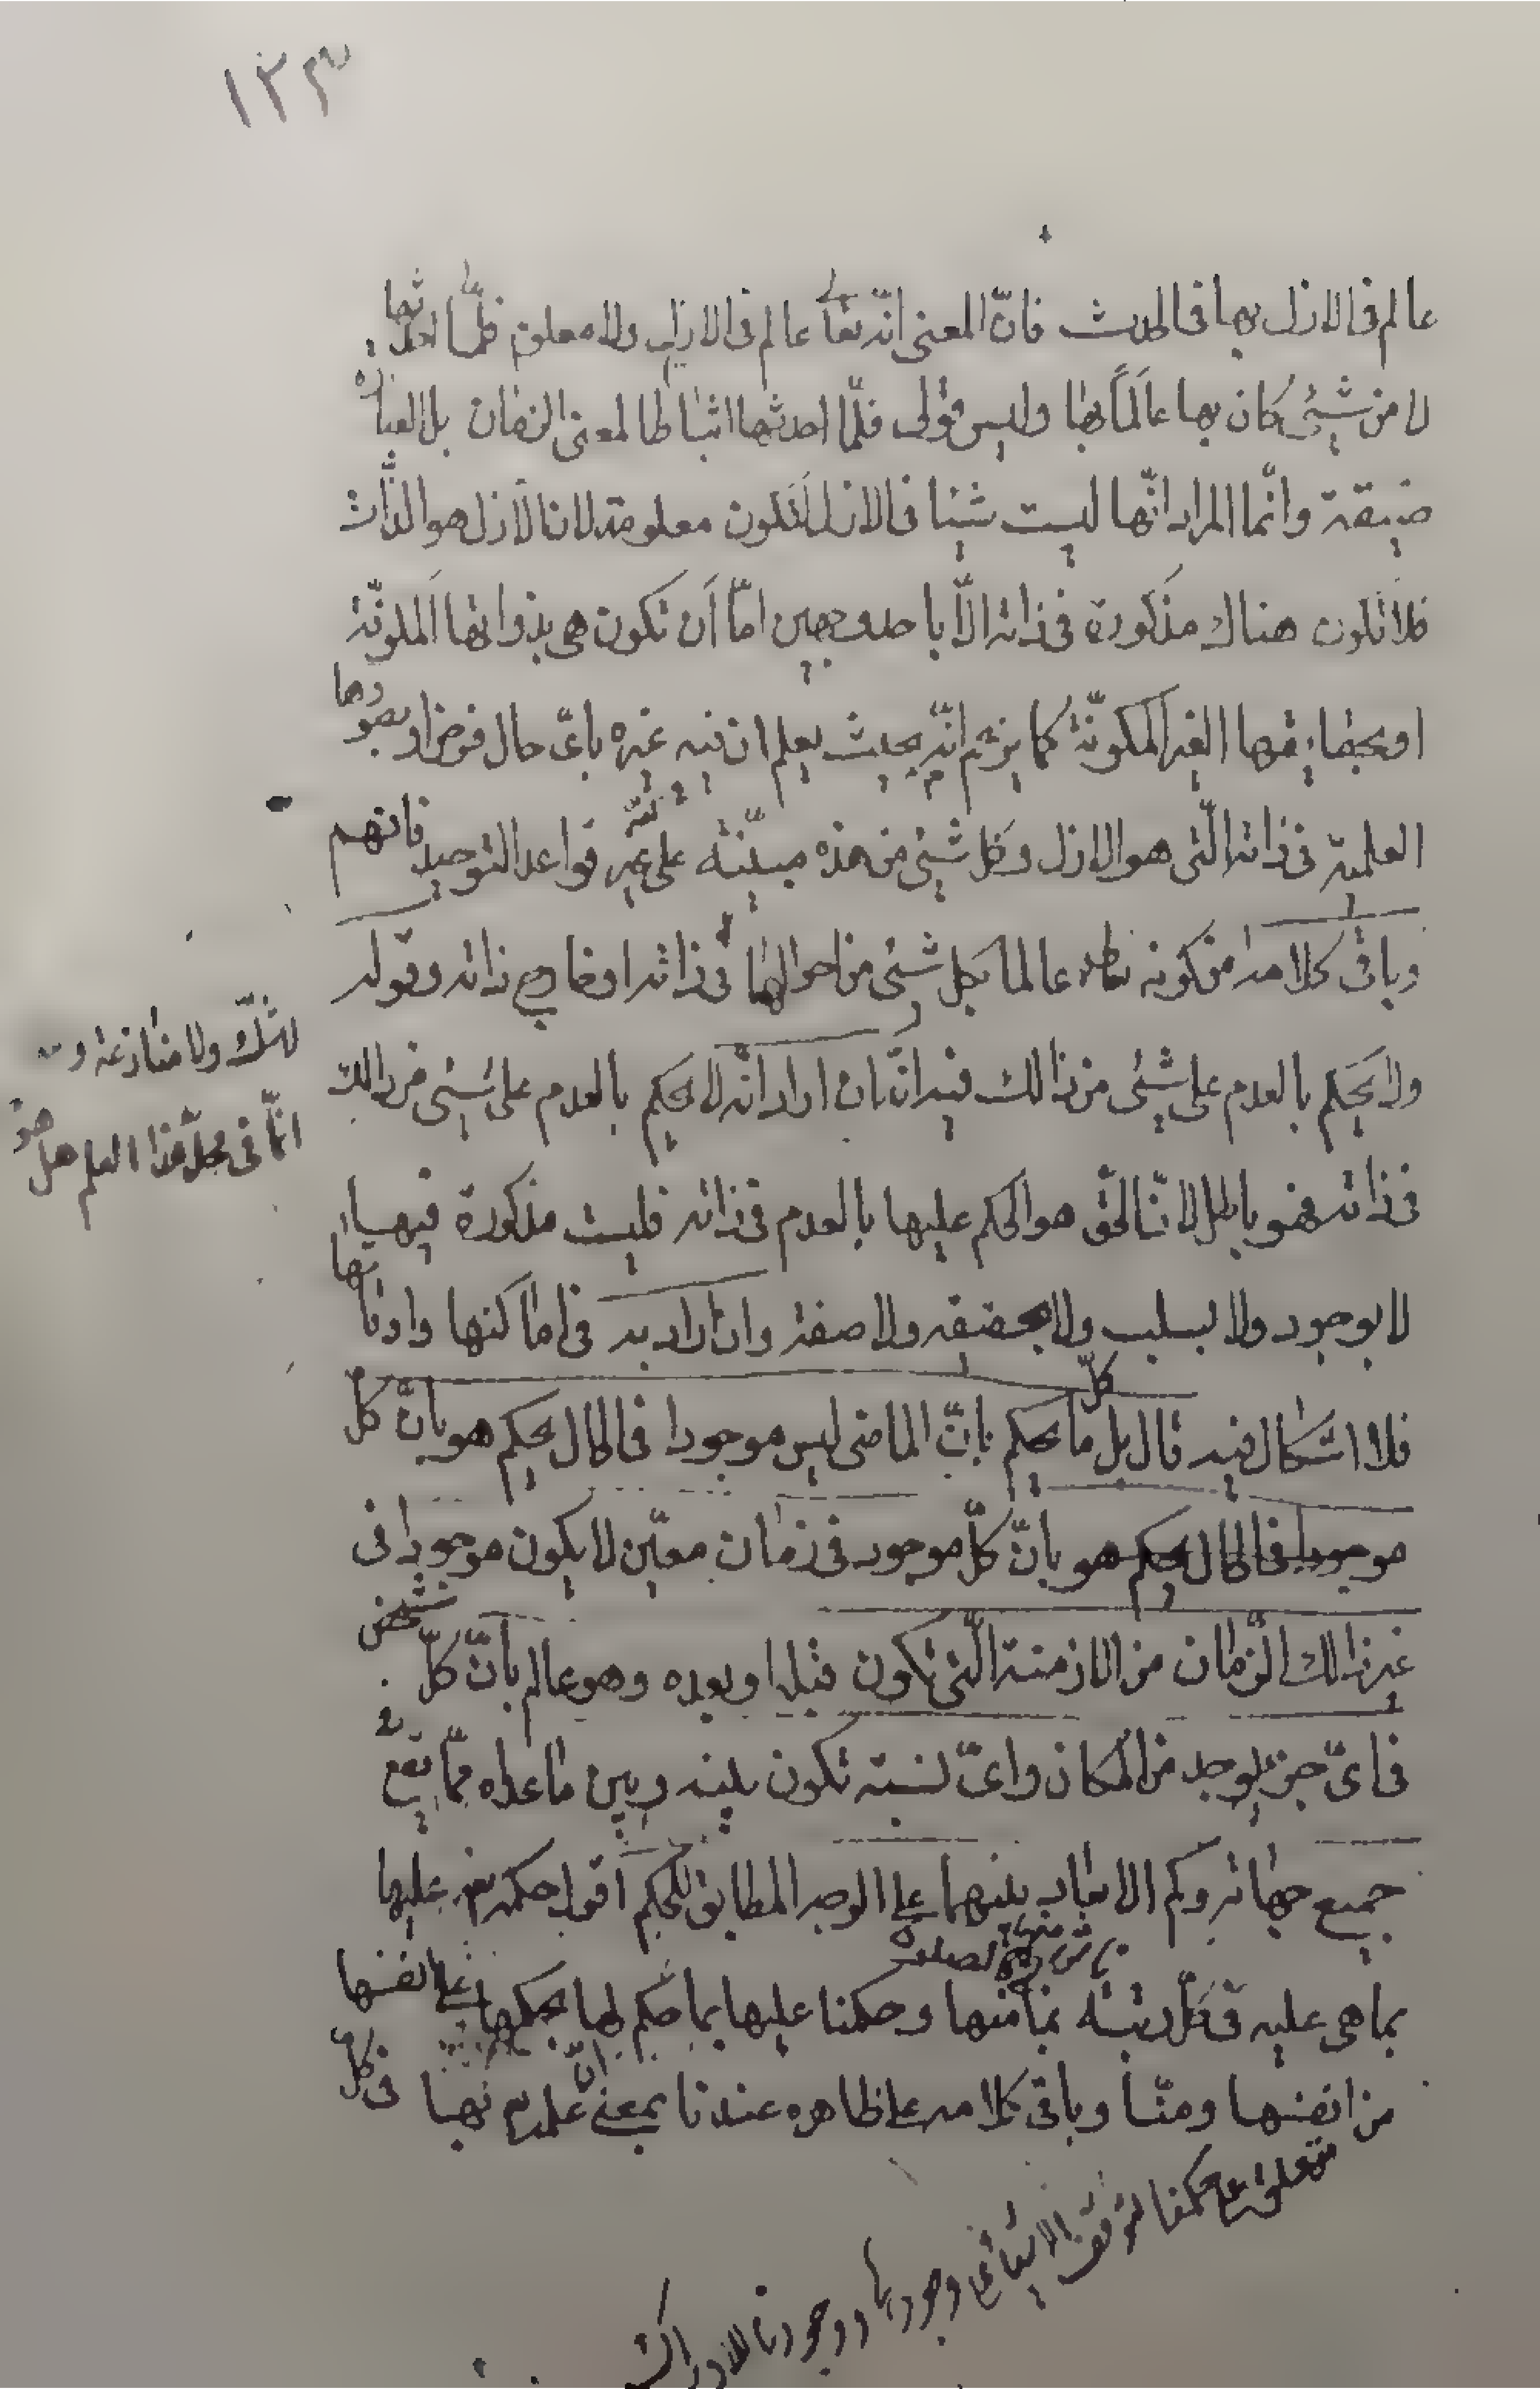 ١٢٣
عالم فى الازل بها فى الحدث فانّ المعنى انّه تعالى عالم فى الازل ولا معلوم فلمّا احدثها
لا من شيئ كان بها عالماً بها وليس قولى فلمّا احدثها اثباتا لمعنى الزمان بل العبارة
ضيقة وانّما المراد انّها ليست شيئا فى الازل لتكون معلومة لان الازل هو الذّات
فلا تكون هناك مذكورة فى ذاته الّا باحد وجهين امّا أن تكون هى بذواتها المكونّة
او بحقايقها الغير المكونّة كما يزعم انّه بحيث يعلم ان فيه غيره باىّ حال فرض او بصورها
العلمية فى ذاته الّتى هو الازل وكل شيئ من هذه مبنيّة على غير قواعد التوحيد فافهم
وباقى كلامه من كونه تعالى عالما بكل شيئ من احوالها فى ذاته او خارج ذاته وقوله
ولا يحكم بالعدم على شيئ من ذالك فيه انّه ان اراد انّه لا يحكم بالعدم على شيئ من ذالك
فى ذاته فهو باطل لانّ الحقّ هو الحكم عليها بالعدم فى ذاته فليست مذكورة فيها
لا بوجود ولا بسلب ولا بحقيقه ولا صفة وان اراد به فى اماكنها واوقاتها
فلا اشكال فيه قال بل كلّ ما يحكم بانّ الماضى ليس موجودا فى الحال يحكم هو بانّ كلّ
موجودا فى الحال يحكم هو بانّ كلّ موجود فى زمان معيّن لا يكون موجودا فى
غير ذالك الزمان من الازمنة الّتى تكون قبله او بعده وهو عالم بانّ كلّ شخص
فى اىّ جزء يوجد من المكان واىّ نسبة تكون بينه وبين ما عداه ممّا يقع فى
جميع جهاته وكم الابعاد بينهما على الوجه المطابق للحكم اقول حكمه تعالى عليها
بما هى عليه فى كلّ رتبة بما منها وحكمنا عليها بما حكم لها بحكمها على انفسها
من انفسها ومنّا وباقى كلامه على ظاهره عندنا بمعنى انّ علمه بها فى كلّ
لشكّ ولا منازعة و
انّما فى محلّ هذا العلم هل هو
متعلق حكمنا لتوقف الاشياء فى وجودها ووجودنا للادراك